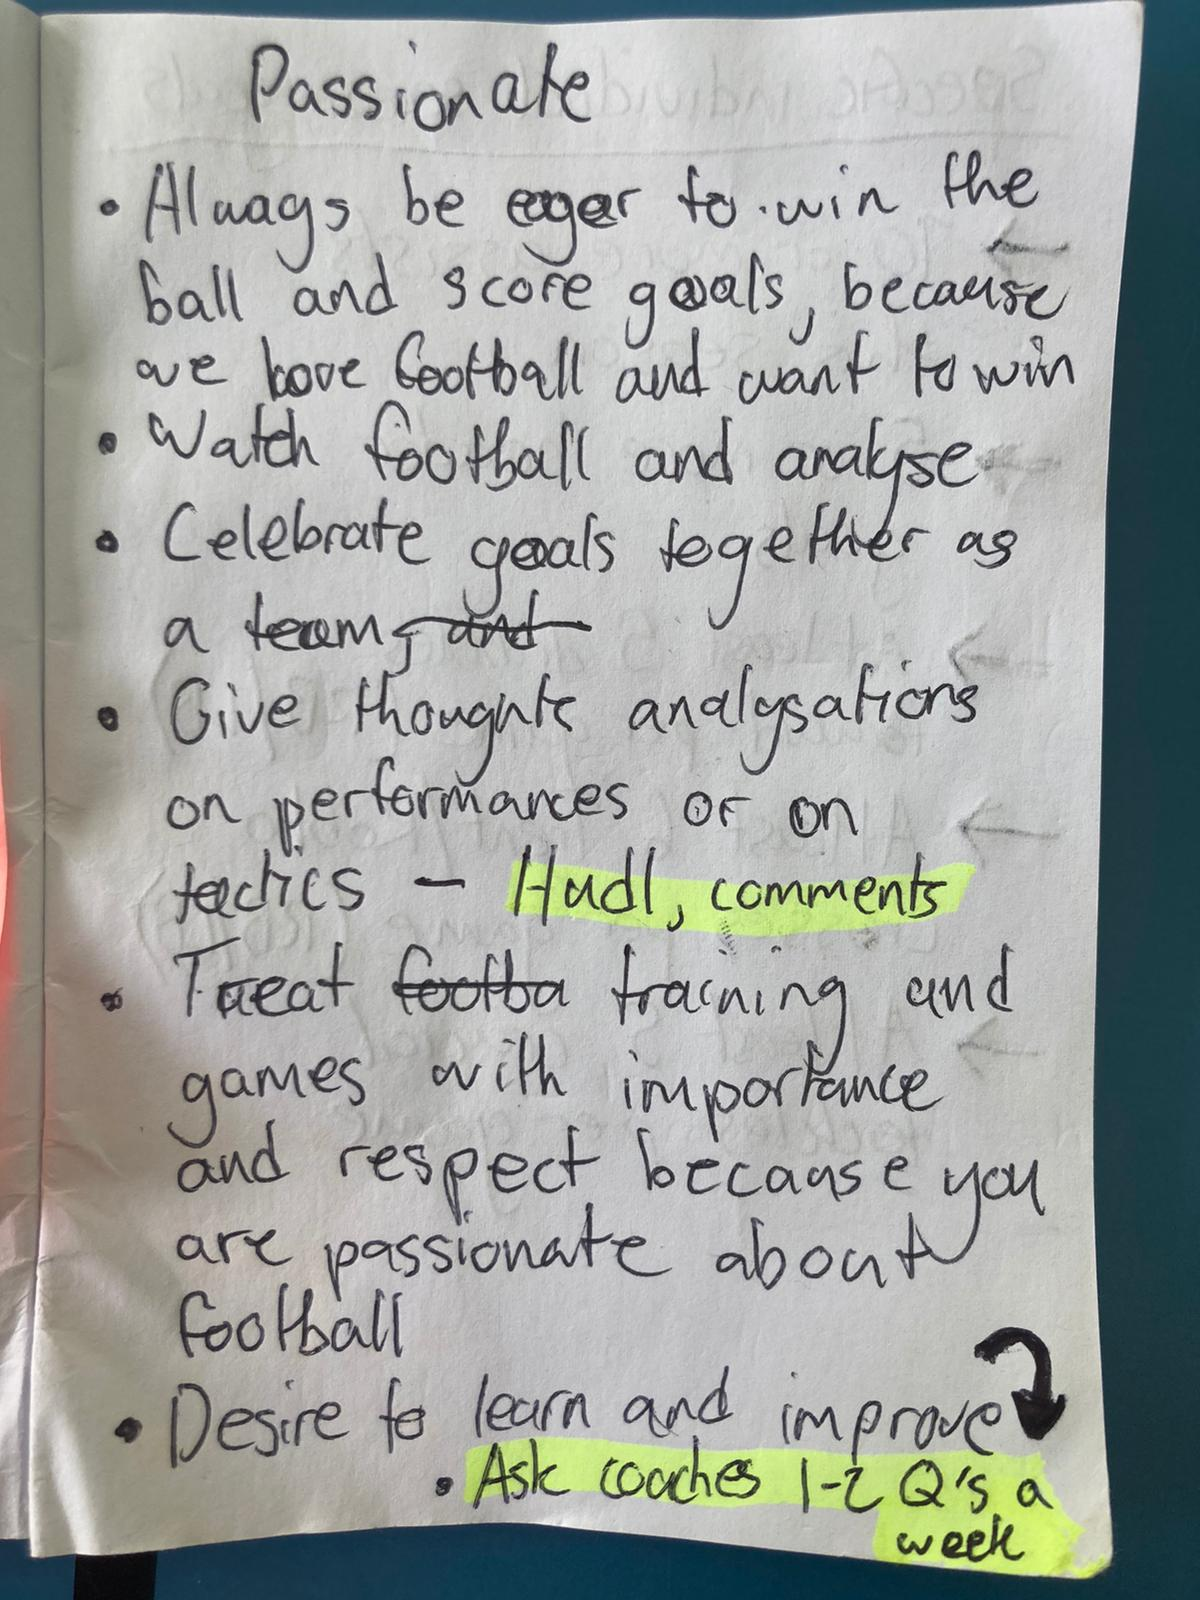 Passionate
• Always be eager to win the
ball and score goals, because
we love football and want to win
• Watch football and analyse
• Celebrate goals together as
a team, and
• Give thoughts analysations
on performances or on
tactics – Hudl, comments
• Treat footba training and
games with importance
and respect because you
are passionate about
football
• Desire to learn and improve
• Ask coaches 1-2 Q's a
week